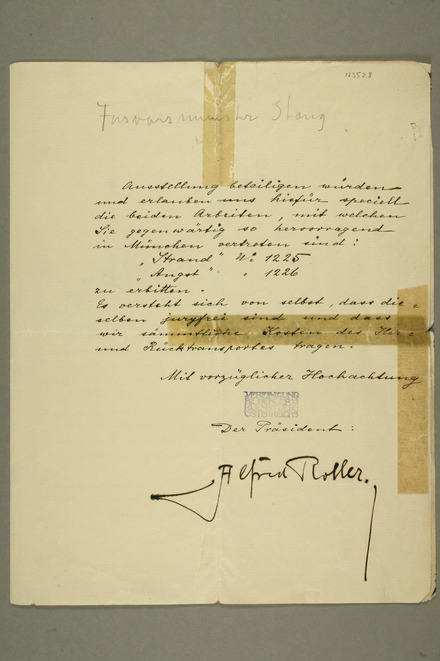 N3528
Forsvarsminister Stang
Ausstellung beteiligen würden
und erlauben uns hiefür speciell
die beiden Arbeiten, mit welchen
Sie gegenwärtig so hervorragend
in München vertreten sind:
"Strand" No 1225
"Angst" " 1226
zu erbitten.
Es versteht sich von selbst, dass die=
selben juryfrei sind und dass
wir sämmtliche Kosten des Her=
und Rücktransportes tragen.
Mit vorzüglicher Hochachtung
VEREINIGUNG
Der Präsident:
Alfred Roller.